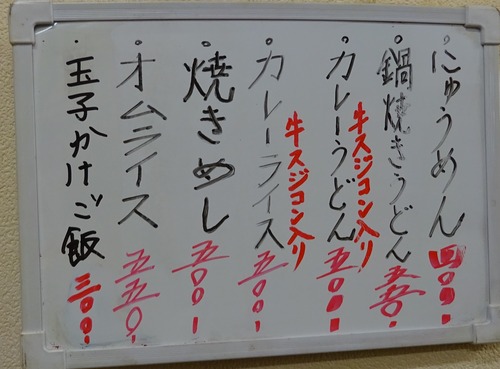 にゅうめん 四〇〇.
鍋焼きうどん 五五〇.
牛スジコン入り
カレーうどん 五〇〇.
牛スジコン入り
カレーライス 五〇〇.
焼きめし 五〇〇.
オムライス 五五〇.
玉子かけご飯 三〇〇.